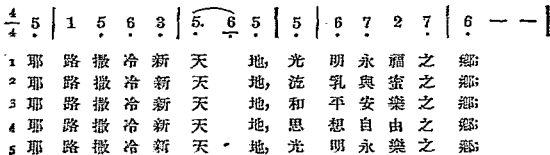 4/4 5 | 1 5 6 3 | 5. 6 5 5 | 6 7 2 7 | 6 — — ‖
1 耶路撒冷新天地,光明永福之鄉;
2 耶路撒冷新天地,流乳與蜜之鄉;
3 耶路撒冷新天地,和平安樂之鄉;
4 耶路撒冷新天地,思想自由之鄉;
5 耶路撒冷新天地,光明永樂之鄉;